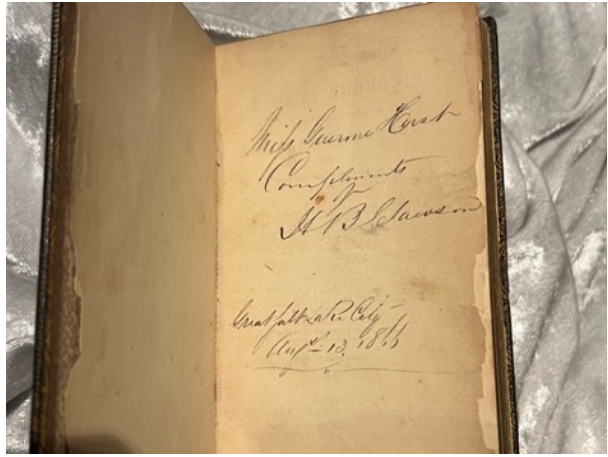 Miss Guernie Hurst
Compliments
of
H B Clawson
Great Salt Lake City
Augst 13. 1866